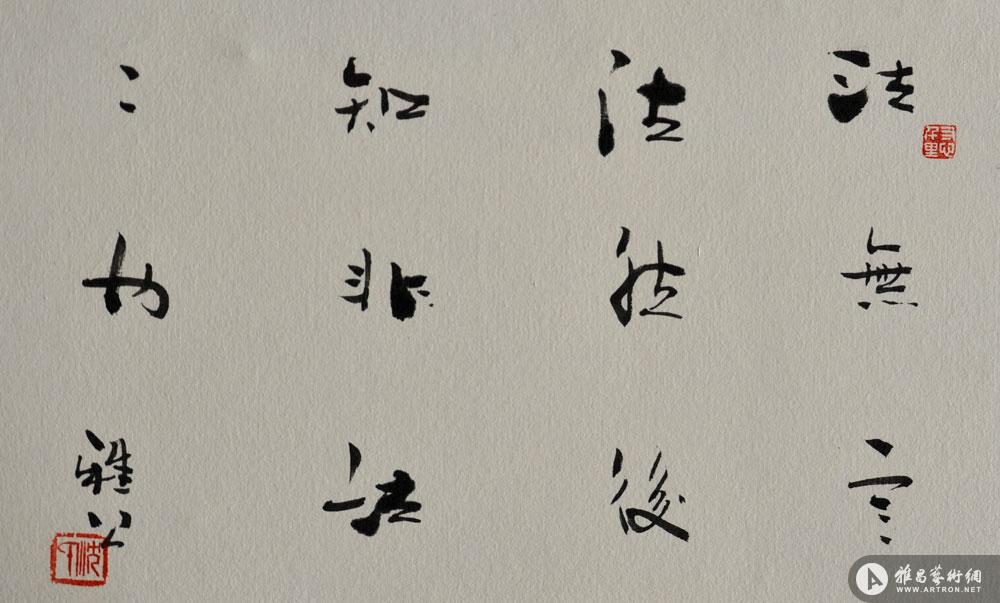 法無定
法然後
知非法
〻也 雅公
雅昌藝術網
WWW.ARTRON.NET